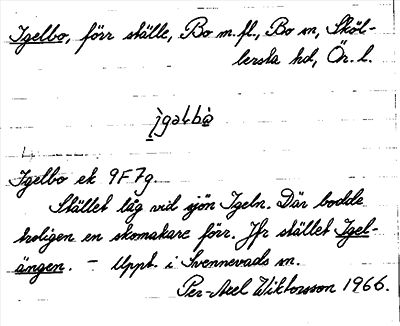 Igelbo, förr ställe, Bo m.fl., Bo sn, Sköl-
lerska hd, Ör. l.
ìgəlbò
Igelbo ek 9F7g.
Stället låg vid sjön Igeln. Där bodde
troligen en skomakare förr. Jfr stället Igel-
ängen. – Uppt. i Svennevads sn.
Per-Axel Wiktorsson 1966.